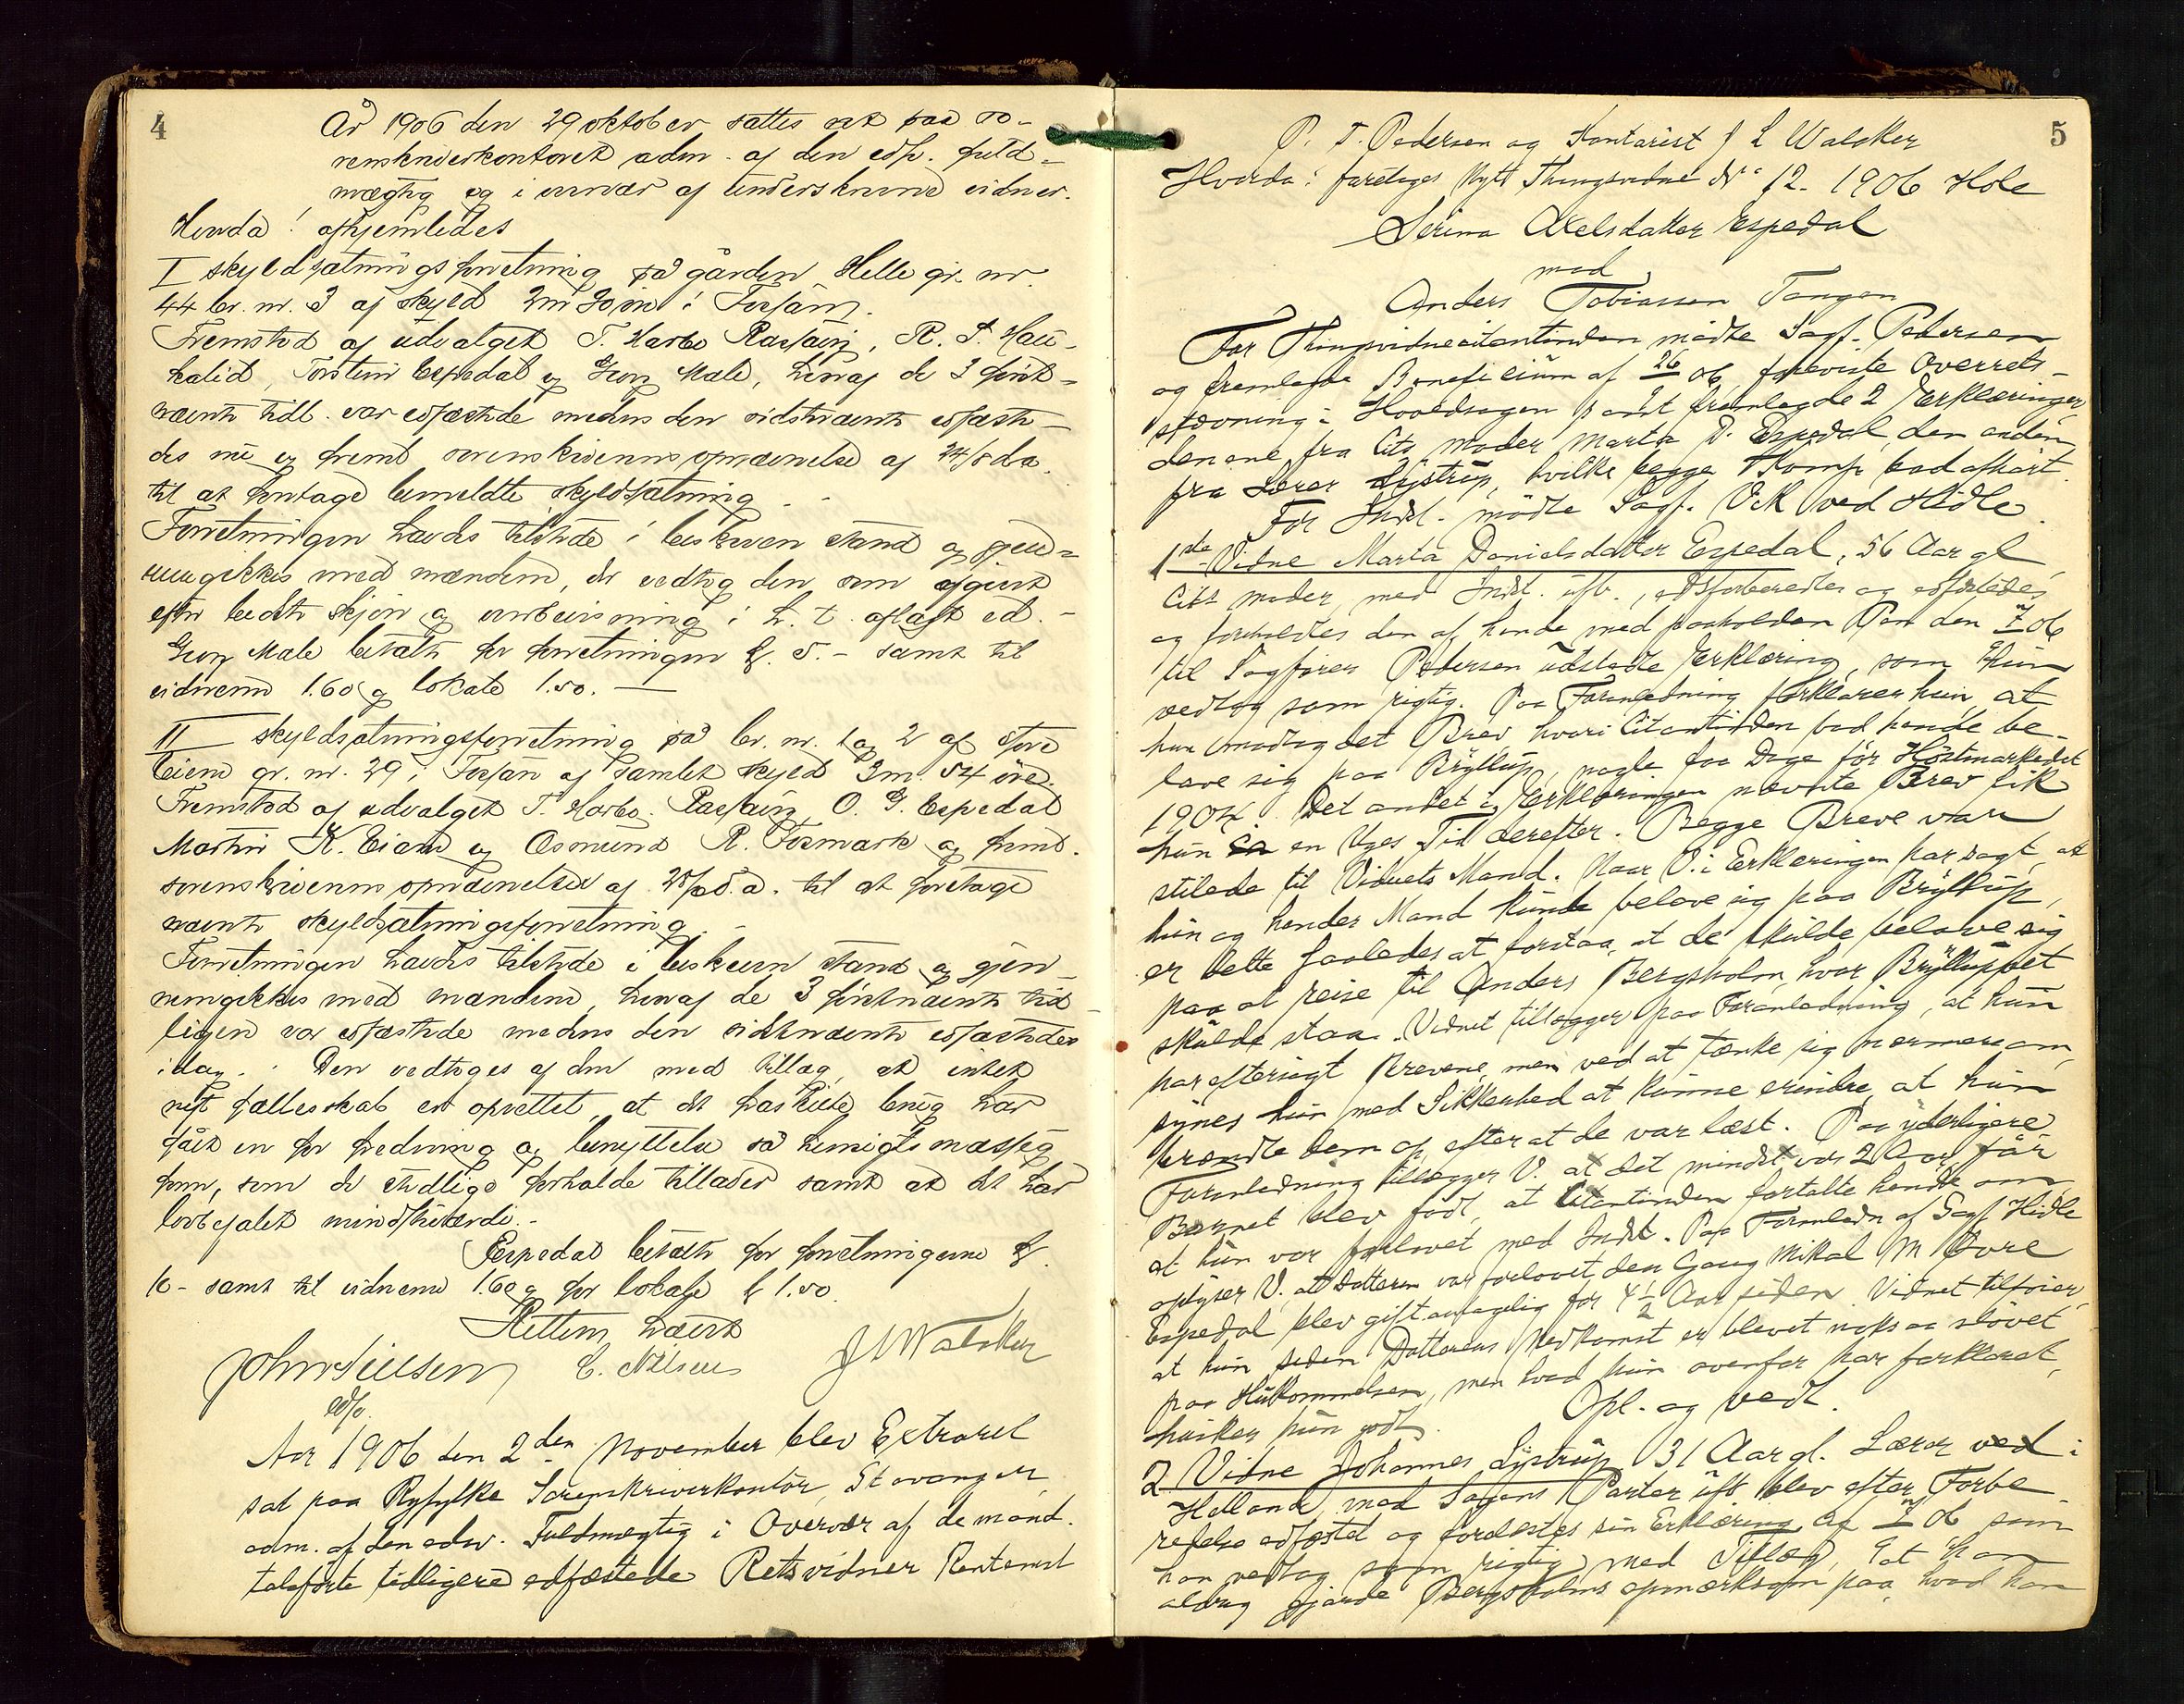 4
År 1906 den 29 oktober sattes ret paa so-
renskriverkontoret adm. af den edsv. fuld-
mægtig og i nærvær af underskrevne vidner.
Hvorda! afhjemledes
I skyldsætningsforretning på gården Helle gr. nr.
44 br. nr. 3 af skyld 2m 30 øre i Forsan.
Fremstod af udvalget T. Harbo Rasfain, R. S. Hau-
kalid, Torstein Espedal og Georg Male, hvoraf de 3 først-
nævnte tidl. var edfæstede medens den sidstnævnte edfæste-
des nu og fremt. sorenskriverens opnævnelse af 24/8 d.a.
til at foretage bemeldte skyldsætning.
Forretningen havdes tilstede i beskreven stand og gjen-
nemgikkes med mændene, der vedtog den som afgivet
efter bedste skjøn og overbevisning i h. t. aflagt ed.
Georg Male betalte for forretningen kr. 5.- samt til
vidnerne 1.60 og lokale 1.50.
II skyldsætningsforretning på br. nr. 1 og 2 af
Eiene gr. nr. 29 i Forsan af samlet skyld 3m. 54 øre.
Fremstod af udvalget T. Harbo Rasfain, O. G. Espedal
Martin K. Eiane og Osmund R. Fosmark og fremt.
sorenskriverens opnævnelse af d.a. til at foretage
nævnte skyldsætningsforretning.
Forretningen havdes tilstede i beskreven stand og gjen-
nemgikkes med mændene, hvoraf de 3 førstnævnte tid-
ligere var edfæstede medens den sidstnævnte edfæstedes
idag. Den vedtoges af dem med tillæg, at intet
nyt fællesskab er oprettet, at det fraskilte brug har
fået en for fredning og benyttelse så hensigtsmæssig
form, som de stedlige forholde tillader samt at det har
lovbefalet mindsteværdi.-
Espedal betalte for forretningerne kr.
10- samt til vidnerne 1.60 og for lokale kr 1.50
Retten hævet
John Nielsen C. Nilsen J L Walsker
edsv.
Aar 1906 den 2den November blev Extraret
sat paa Ryfylke Sorenskriverkontor, Stavanger,
adm. af den edsv. Fuldmægtig i Overvær af de mand.
talsførte tidligere edfæstede Retsvidner Rentemst
5
P. T. Pedersen og Kontorist J L Walsker
Hvorda: foretoges Nytt Thingsvidne No 12- 1906 Hole
Serina Axelsdatter Espedal
mod
Anders Tobiassen Tangen
For Thingsvidnecitantinden mødte Sagf. Pedersen
og fremlagde Beneficium af 26 06, foreviste Overrets-
stævning i Hovedsagen samt fremlagde 2 Erklæringer,
den ene fra Cits moder Marta D. Espedal, den anden
fra Lærer Lystrup, hvilke begge Komp. bad afhørt.
For Indst. mødte Sagf. Vik ved Hidle.
1ste Vidne Marta Danielsdatter Espedal, 56 Aar gl
Cits moder, med Indst. ubsl., edsforberedtes og edfæstedes,
og foreholdtes den af hende med paaholden Pen den 06
til Sagfører Pedersen udstedte Erklæring, som hun
vedtog som rigtig. Paa Foranledning forklarer hun, at
hun modtog det Brev hvori Citantinden bad hende be-
lave sig paa Bryllup, nogle faa Dage før Høstmarkedet
1904. Det andet i Erklæringen nævnte Brev fik
hun en Uges Tid derefter. Begge Breve var
stilede til Vidnets Mand. Naar V. i Erklæringen har sagt, at
hun og hendes Mand kunde belave sig paa Bryllup,
er dette saaledes at forstaa, at de skulde belave sig
paa at reise til Anders Bergsholm, hvor Brylluppet
skulde staa. Vidnet tillægger paa Foranledning, at hun
har eftersøgt Brevene, men ved at tænke sig nærmere om,
synes hun med Sikkerhed at kunne erindre, at hun
brændte dem op, efter at de var læst. Paa yderligere
Foranledning tillægger V. at det mindst var 2 Aar før
Barnet blev født, at Citantinden fortalte hende om
at hun var forlovet med Indst. Paa Foranledn af Sagf. Hidle
oplyser V., at Datteren var forlovet den Gang Mikal M Øvre
Espedal blev gift antagelig for 4 1/2 Aar siden. Vidnet tilføier,
at hun siden Datterens Nedkomst er blevet noksaa sløvet
paa Hukommelsen, men hvad hun ovenfor har forklaret,
husker hun godt. Opl. og vedt.
2 Vidne Johannes Lystrup 31 Aar gl. Lærer ved i
Helland, med Sagens Parter ubsl blev efter Forbe-
redelse edfæstet og forelæstes sin Erklæring af 06 som
han vedtog som rigtig med Tillæg, at han
aldrig gjorde Bergsholms opmærksom paa, hvad han